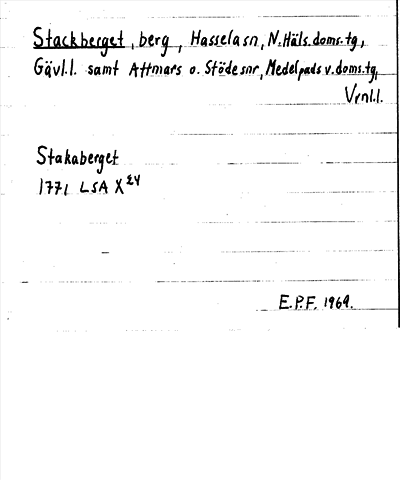 Stackberget, berg, Hasselasn, N.Häls.doms.tg,
Gävl.l. samt Attmars o. Stödesnr, Medelpads v.doms.tg,
Vrnl.l.
Stakaberget
1771 LSA X
E.P.F. 1969.